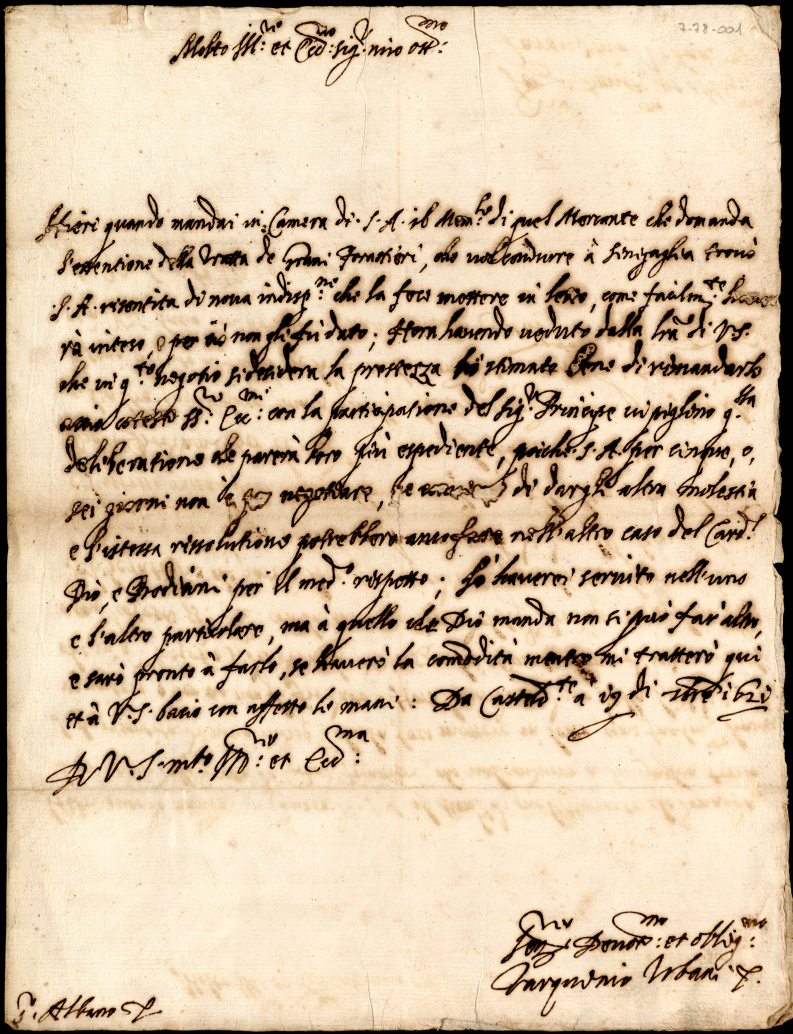 7-78-001
Molto Ill:re et Ecc:mo sig:r mio oss:mo
Hieri quando mandai in Camera di S. A. il Mem:le di quel Mercante che domanda
l'essentione della Tratta de grani forastieri, che vol condurre à Sinigaglia trovò
S. A. risentita di nova indisp:ne che la fece mettere in letto, come facilm:te
rà inteso, e per ciò non gli fù dato; Hora havendo veduto dalla lra di V. S.
che in q:to negotio si desidera la prestezza hò stimato bene di rimandarlo
cotesti SS:ri Ecc:mi con la participatione del sig:r Principe vi piglino q:lla
deliberatione che parerà loro più espediente, poiche S. A. per cinque, o,
sei giorni non è per negotiare, di dargli altra molestia
e l'istessa rissolutione potrebbero anco fare nell'altro caso del Card:l
Diò, e per il med:o rispetto; Io haverei servito nell'uno
e l'altro particolare, ma à quello che Dio manda non si può far'altro,
e sarò pronto à farlo, se haverò la comodità mentre mi tratterò qui
et à V. S. bacio con affetto le mani: Da Casteld:te a 19 di 1621
Di V. S. m:to Ill:re et Ecc:ma
Ser:re Devot:mo et oblig:mo
Tarquinio Urbani
S. Albano